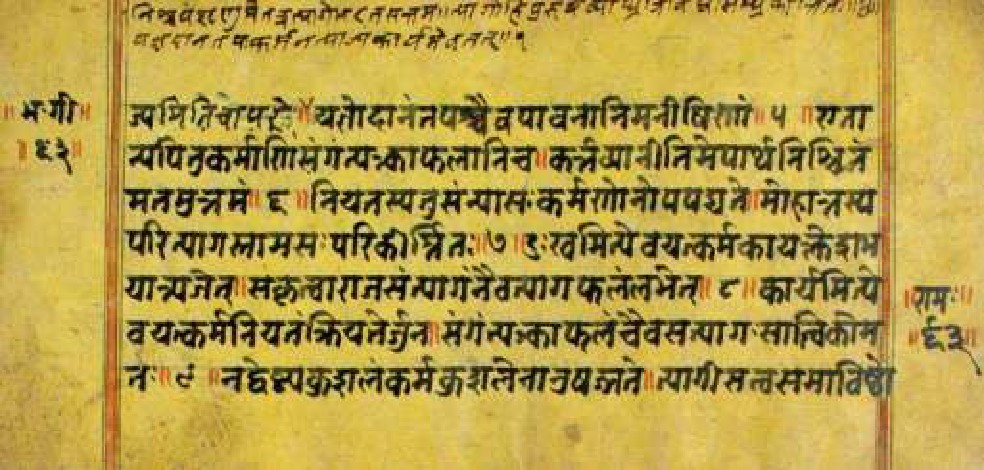 भ॰गी
६३
ज्यमितिचापरे॥ यज्ञोदानंतपश्चैवपावनानिमनीषिणां॥५॥एता
न्यपितुकर्माणिसंगंत्यक्काफलानिच॥कर्त्तव्यानीतिमेपार्थनिश्चितं
मतमुत्तमं॥६॥नियतस्यतुसंन्यासःकर्मणोनोपपद्यते॥मोहात्तस्य
परित्यागस्तामसःपरिकीर्त्तितः॥७॥दुःखमित्येवयत्कर्मकायक्लेशभ
यात्त्यजेत्॥सकृत्वाराजसंत्यागंनैवत्यागफलंलभेत्॥८॥कार्यमित्ये
वयत्कर्मनियतंक्रियतेर्जुन॥संगंत्यक्काफलंचैवसत्यागःसात्विकोम
तः॥९॥नद्वेष्ट्यकुशलंकर्मकुशलेनानुषज्जते॥त्यागीसत्वसमाविष्टो
रामः
६३